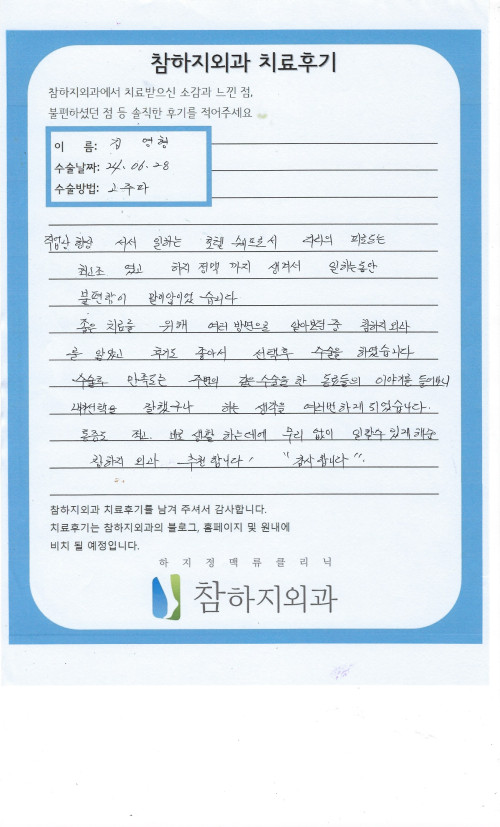 참하지외과 치료후기
참하지외과에서 치료받으신 소감과 느낀 점,
불편하셨던 점 등 솔직한 후기를 적어주세요
이 름: 김 영철
수술날짜: 24. 06. 28
수술방법: 고주파
직업상 항상 서서 일하는 호텔 쉐프로서 다리의 피로도는
최고조 였고 하지 정맥 까지 생겨서 일하는동안
불편함이 많이있었 습니다
좋은 치료를 위해 여러 방면으로 알아보던 중 참하지외과
를 알았고 후기도 좋아서 선택후 수술을 하였습니다
수술후 만족도는 주변의 같은수술을 한 동료들의 이야기를 들어보니
내선택을 잘했구나 하는 생각을 여러번하게 되었습니다.
통증도 적고 바로 생활 하는데에 무리 없이 일할수 있게 해준
참하지 외과 추천 합니다 " 감사 합니다 ".
참하지외과 치료후기를 남겨 주셔서 감사합니다.
치료후기는 참하지외과의 블로그, 홈페이지 및 원내에
비치 될 예정입니다.
하지정맥류클리닉
참하지외과